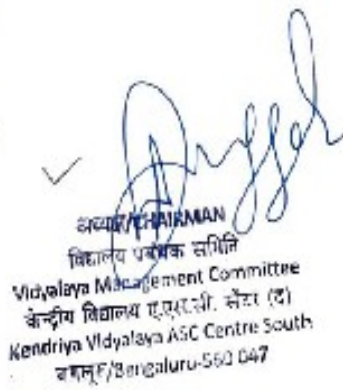 अध्यक्ष/CHAIRMAN
विद्यालय प्रबंधक समिति
Vidyalaya Management Committee
केन्द्रीय विद्यालय ए.एस.सी. सेंटर (द)
Kendriya Vidyalaya ASC Centre South
बेंगलूरु/Bengaluru-560 047